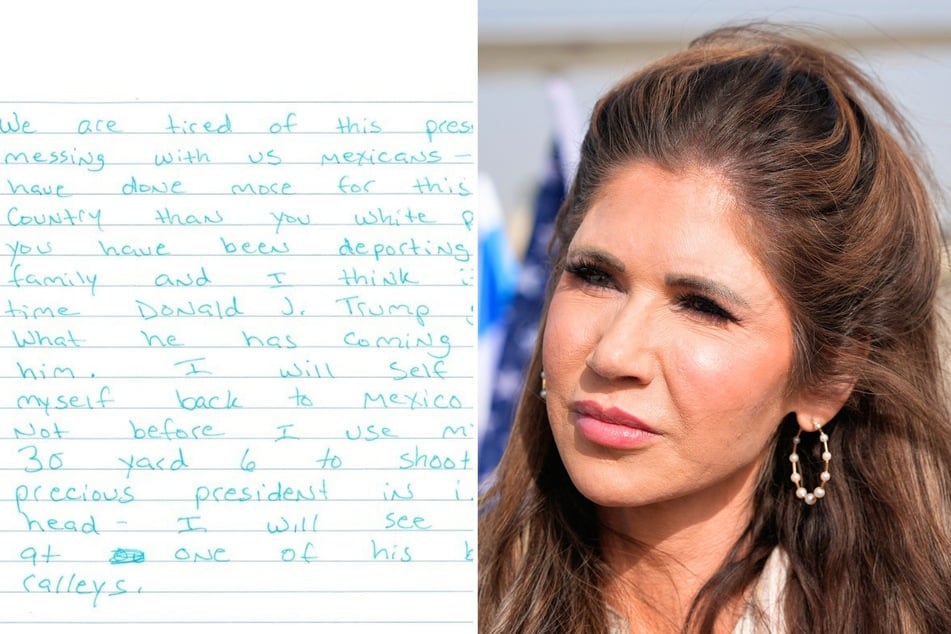 We are tired of this pres
messing with us Mexicans -
have done more for this
Country than you white p
you have been deporting
family and I think i
time Donald J. Trump
What he has coming
him. I will self
myself back to Mexico
Not before I use m
30 yard 6 to shoot
precious president in i
head - I will see
at one of his
ralleys.